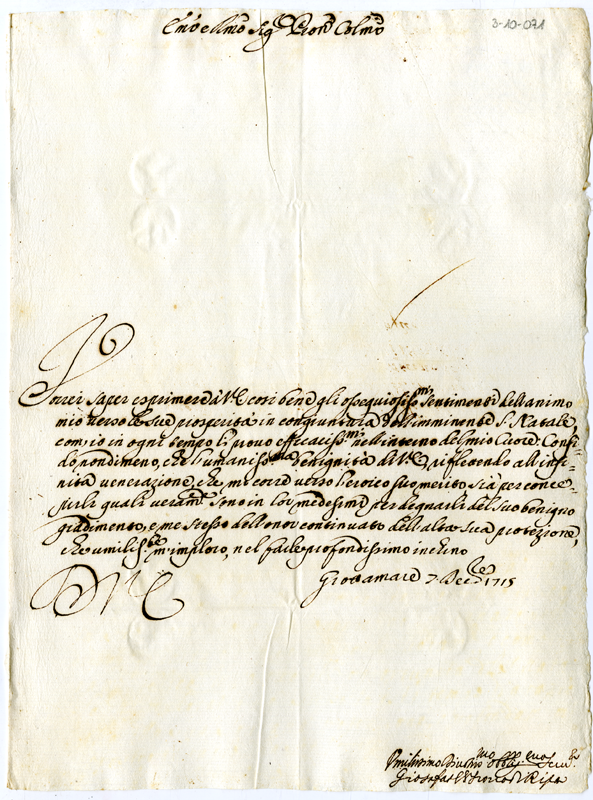 3-10-071
Em̃o e Rm̃o Sig.r Pron Colmo
Vorrei saper esprimere à V.E. così bene gli ossequiosiss.mi sentimenti dell'animo
mio verso le sue prosperità in congiuntura dell'imminente S. Natale,
com'io in ogni tempo li provo efficaciss.mi nell'interno del mio Cuore. Confi-
dò nondimeno, che l'umaniss.ma benignità di V.E. riflettendo all'infi-
nita venerazione, che mi corre verso l'eroico suo merito sia per conce-
pirli quali veram.te sono in loro medesimi per degnarli del suo benigno
gradimento, e me stesso dell'onor continuato dell'alta sua protezione,
che umiliss.te m'imploro, nel farle profondissimo inchino
D V E
Grottamare 7 Dec.re 1715
Umilissimo Divotmo Obblig.mo Serv.re
Giosafat
di Ripa